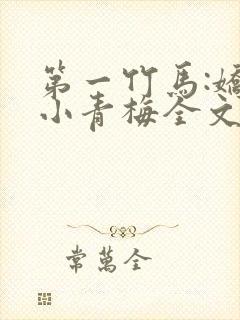 第一竹马:嬌
小青梅全文
常萬全